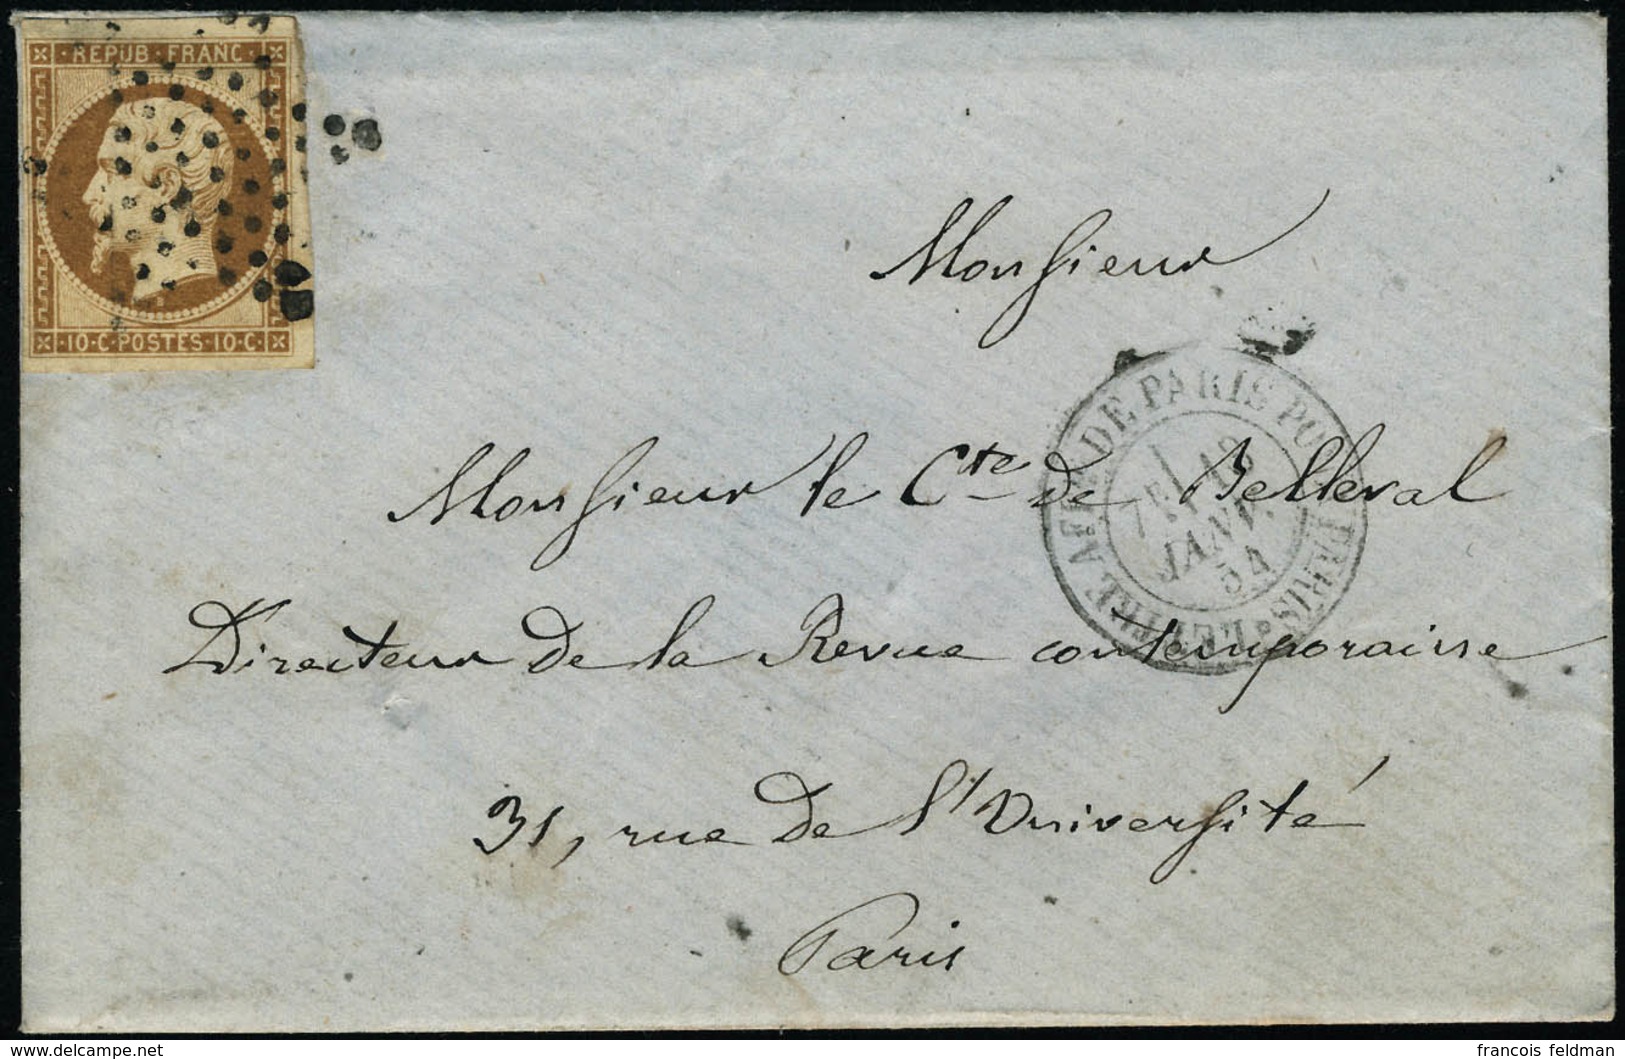 REPUB · FRANC ·
· 10 · C · POSTES · 10 · C ·
Monsieur
LETTRE AFF. DE PARIS POUR PARIS
JANV.
54
Monsieur le Cte de Belleval
Directeur de la Revue contemporaine
31, rue de l'Université
Paris
delcampe.net
francois feldman